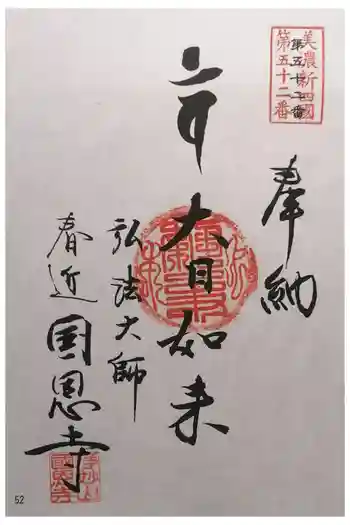 美濃新四國
第五十二番
第五十二番
奉納
大日如来
弘法大師
春近
国恩寺
52